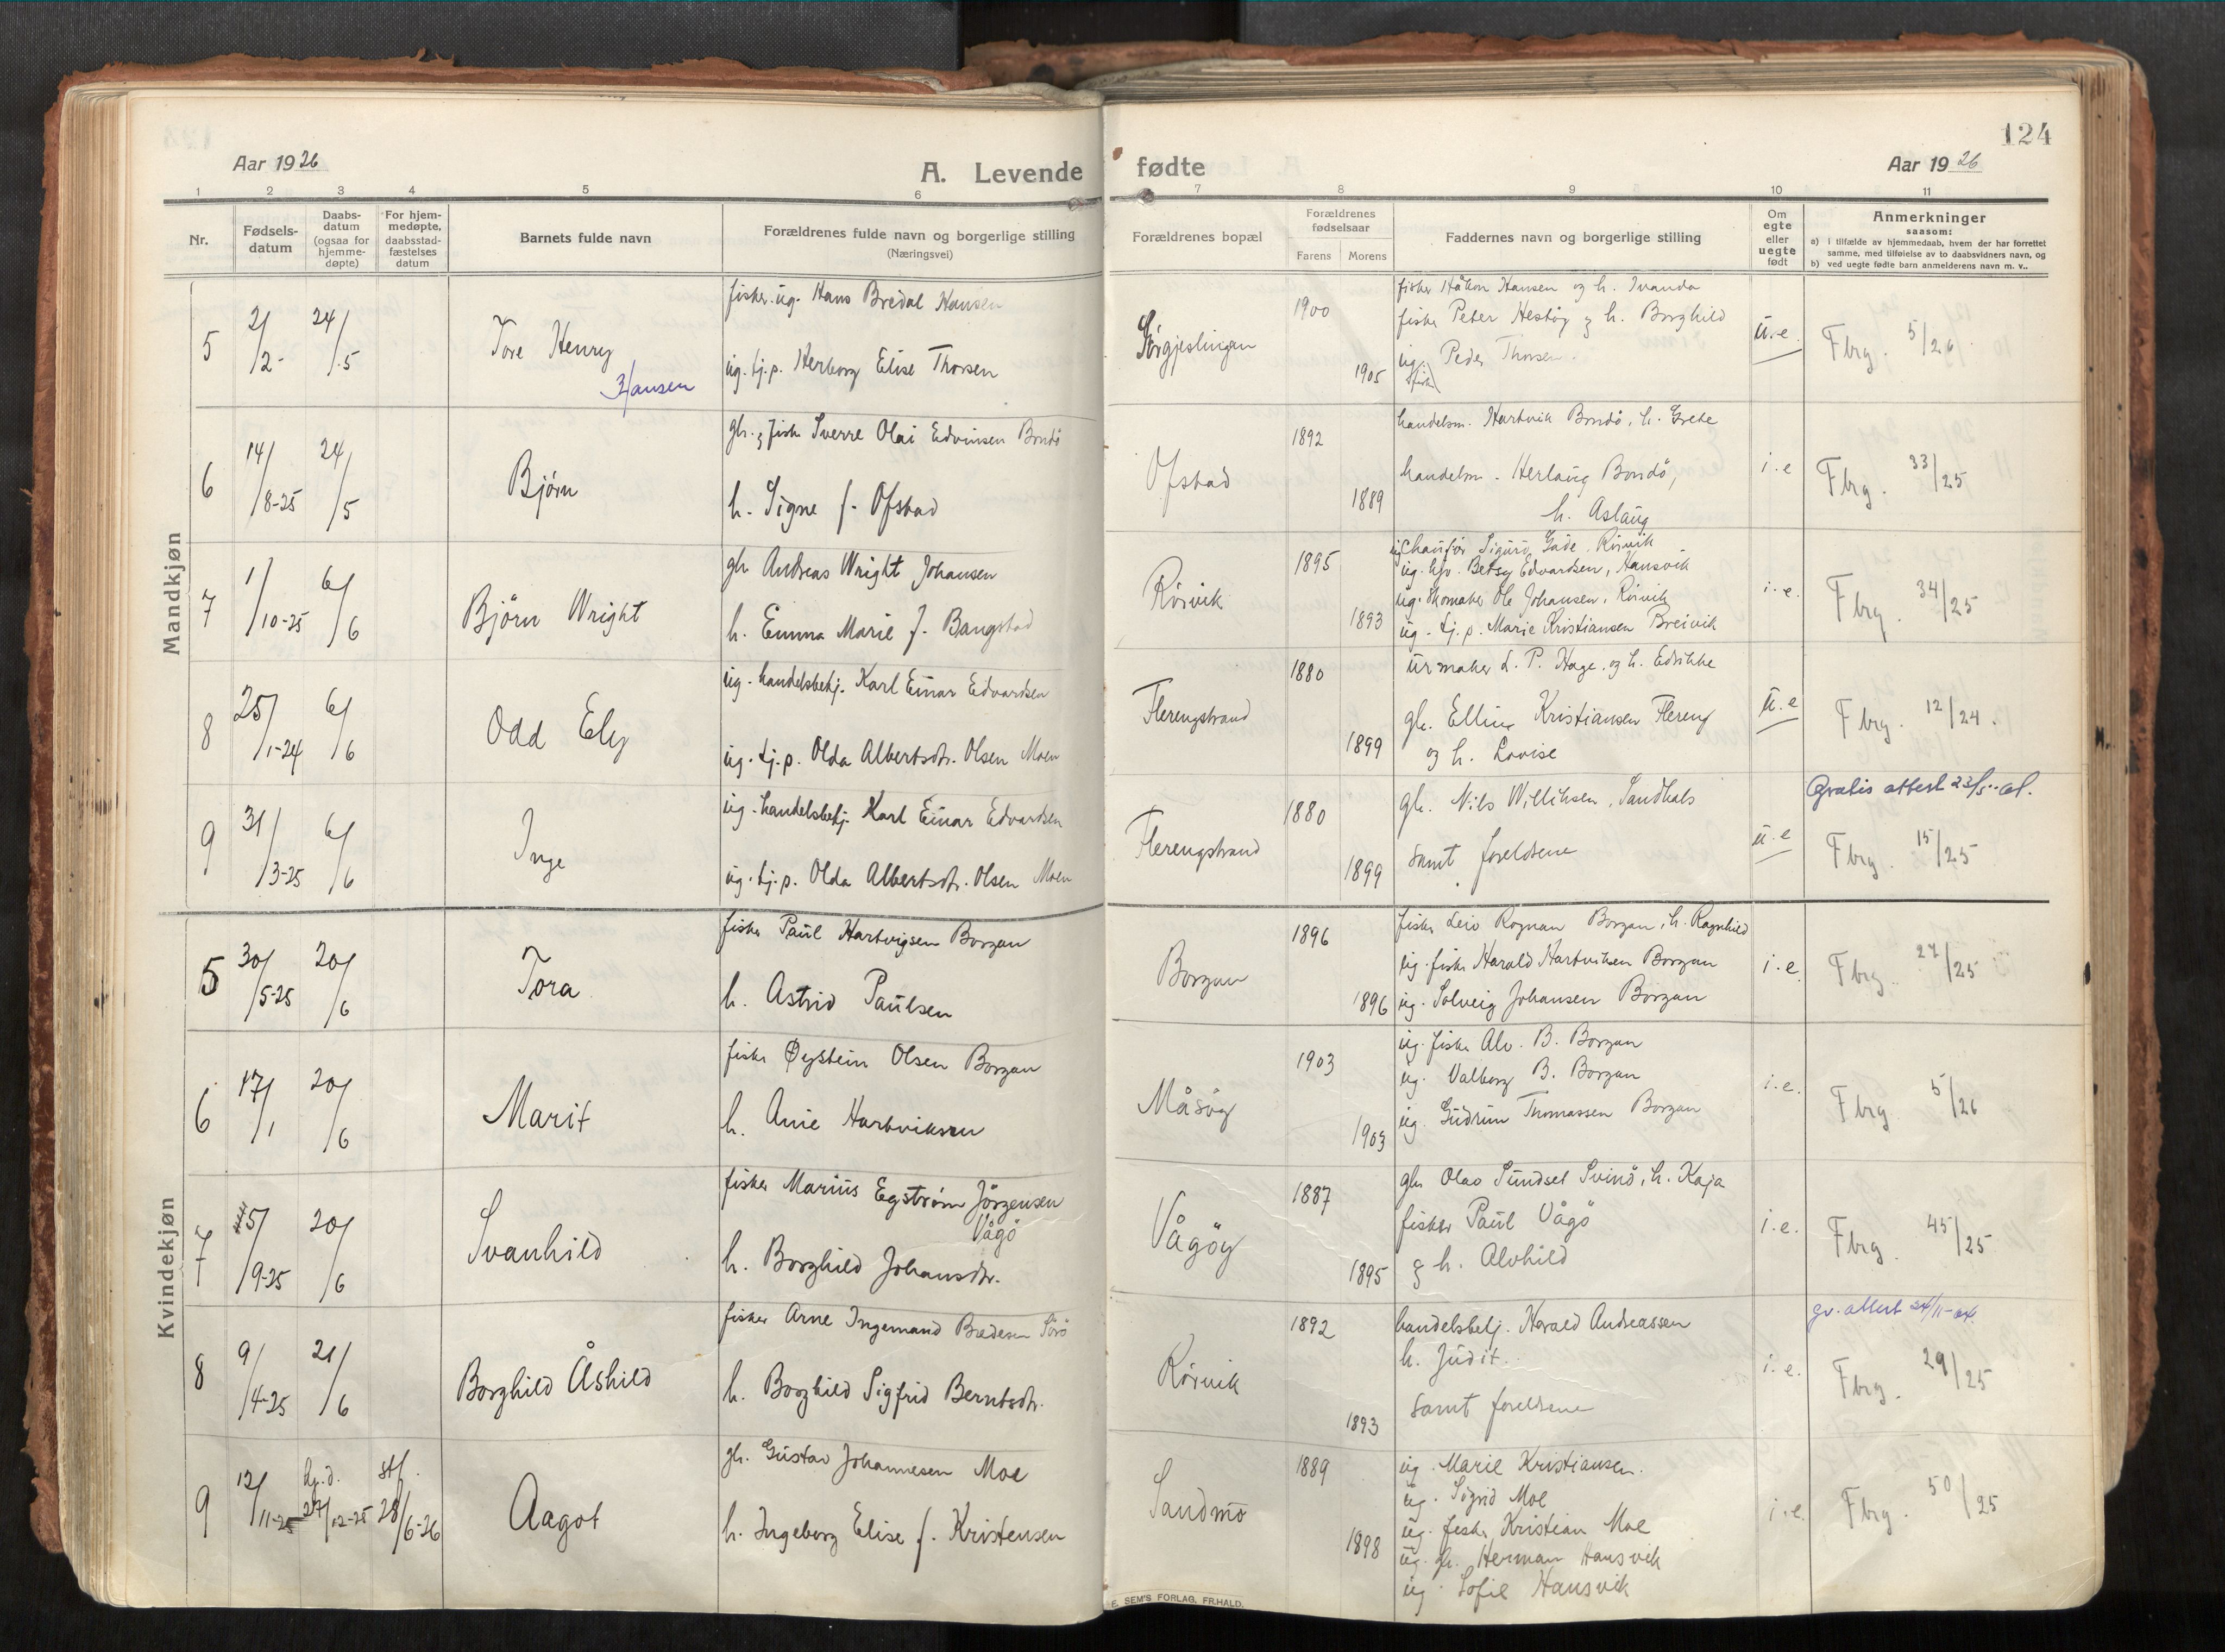 124
Aar 1926
A. Levende fødte
Aar 1926
1 2 3 4 5 6 7 8 9 10 11
Nr.
Fødsels-
datum
Daabs-
datum
(ogsaa for
hjemme-
døpte)
For hjem-
medøpte,
daabsstad-
fæstelses
datum
Barnets fulde navn
Forældrenes fulde navn og borgerlige stilling
(Næringsvei)
Forældrenes bopæl
Forældrenes
fødselsaar
Farens Morens
Faddernes navn og borgerlige stilling
Om
egte
eller
uegte
født
Anmerkninger
saasom:
a) i tilfælde av hjemmedaab, hvem der har forrettet
samme, med tilføielse av to daabsvidners navn, og
b) ved uegte fødte barn anmelderens navn m. v..
Mandkjøn
5 2/2- 24/5 Tore Henry
Hansen
fisker. ug. Hans Bredal Hansen
ug. tj.p. Herborg Elise Thorsen
Sørgjeslingan
1900
1905
fisker Håkon Hansen og h. Ivanda
fisker Peter Hestøy og h. Borghild
ug. Peder Thorsen.
fisker
u.e.
Fbrg. 5/26
6 14/8-25 24/5 Bjørn
gbr. og fisk Sverre Olai Edvinsen Bondø
h. Signe f. Ofstad
Ofstad
1892
1889
handelsm. Hartvik Bondö, h. Grete
handelsm. Herlaug Bondö,
h. Aslaug
i.e
Fbrg. 33/25
7 1/10-25 6/6 Björn Wright
gbr Andreas Wright Johansen
h. Emma Marie f. Bangstad
Rörvik
1895
1893
ug chaufør Sigurd Gade. Rörvik
ug. Betsy Edvardsen, Hansvik
ug. Skomaker Ole Johansen, Rörvik
ug. tj.p. Marie Kristiansen Breivik
i.e.
Fbrg. 34/25
8 25/1-24 6/6 Odd Ely
ug. handelsbetj. Karl Einar Edvardsen
ug. tj.p. Olda Albertsdtr. Olsen Moen
Flerengstrand
1880
1899
urmaker L. P. Hage. og h. Edrikke
gbr. Elling Kristiansen Flereng
og h. Lovise
u.e
Fbrg. 12/24.
9 31/3-25 6/6 Inge
ug. handelsbetj. Karl Einar Edvardsen
ug. tj.p. Olda Albertsdtr. Olsen Moen
Flerengstrand
1880
1899
gbr. Nils Williksen, Sandhals
samt foreldrene
u.e
Gratis attest 23/5-
Fbrg. 15/25
Kvindekjøn
5 30/5-25 20/6 Tora
fisker Paul Hartvigsen Borgan
h. Astrid Paulsen
Borgan
1896
1896
fisker Leiv Rognan Borgan, h. Ragnhild
ug. fisker Harald Hartviksen Borgan
ug. Solveig Johansen Borgan
i.e.
Fbrg. 27/25
6 17/1 20/6 Marit
fisker Øystein Olsen Borgan
h. Anie Hartviksen
Måsøy
1903
1903
ug. fisker Alv. B. Borgan
ug. Valborg B. Borgan
ug. Gudrun Thomassen Borgan
i.e.
Fbrg 5/26
7 5/9-25 20/6 Svanhild
fisker Marius Egström Jörgensen
Vågö
h. Borghild Johansdtr.
Vågöy
1887
1895
gbr Olav Sundset Svinö, h. Kaja
fisker Paul Vågö
og h. Alvhild
i.e.
Fbrg. 45/25
8 9/4-25 21/6 Borghild Åshild
fisker Arne Ingemand Bredesen Sörö
h. Borghild Sigfrid Berntsdtr.
Rörvik
1892
1893
handelsbetj. Harald Andreassen
h. Judit.
samt foreldrene
i.e.
gr. attest 24/11-
Fbrg. 29/25
9 12/11-25 hj.d. 27/12-25 stf. 28/6-26 Aagot
gbr. Gustav Johannesen Moe
h. Ingeborg Elise f. Kristensen
Sandmo
1889
1898
ug. Marie Kristiansen.
ug. Sigrid Moe
ug. fisker Kristian Moe
ug. gbr. Herman Hansvik
ug. Sofie Hansvik
i.e.
Fbrg. 50/25
E. SEM'S FORLAG, FR.HALD.